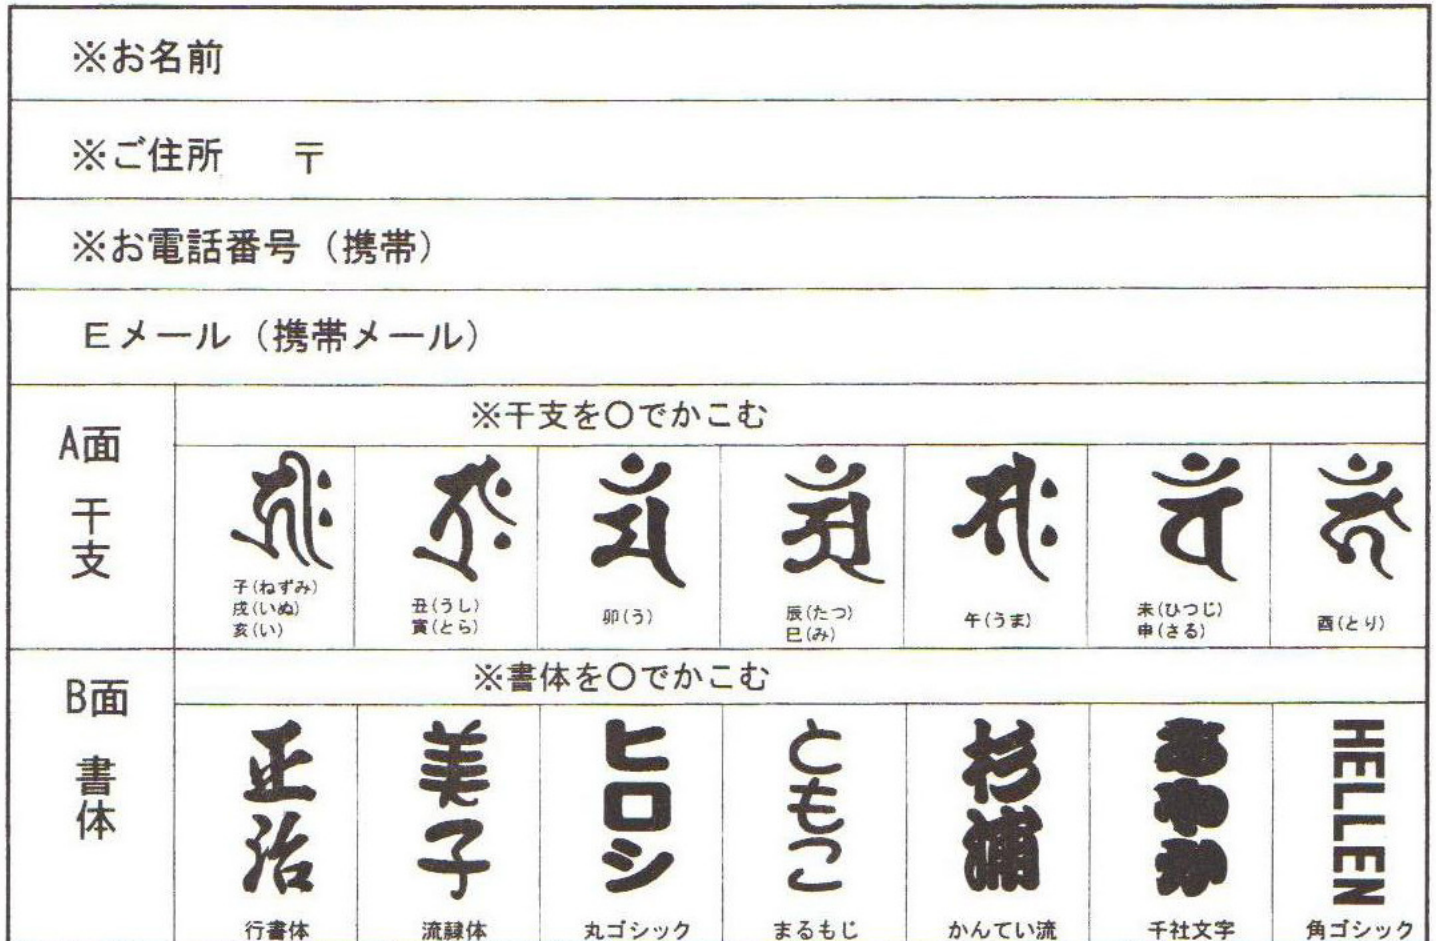 ※お名前
※ご住所　〒
※お電話番号（携帯）
Eメール（携帯メール）
A面
干支
※干支を〇でかこむ
子(ねずみ)
戌(いぬ)
亥(い)
丑(うし)
寅(とら)
卯(う)
辰(たつ)
巳(み)
午(うま)
未(ひつじ)
申(さる)
酉(とり)
B面
書体
※書体を〇でかこむ
正治
行書体
美子
流隷体
ヒロシ
丸ゴシック
ともこ
まるもじ
杉浦
かんてい流
あやか
千社文字
HELLEN
角ゴシック